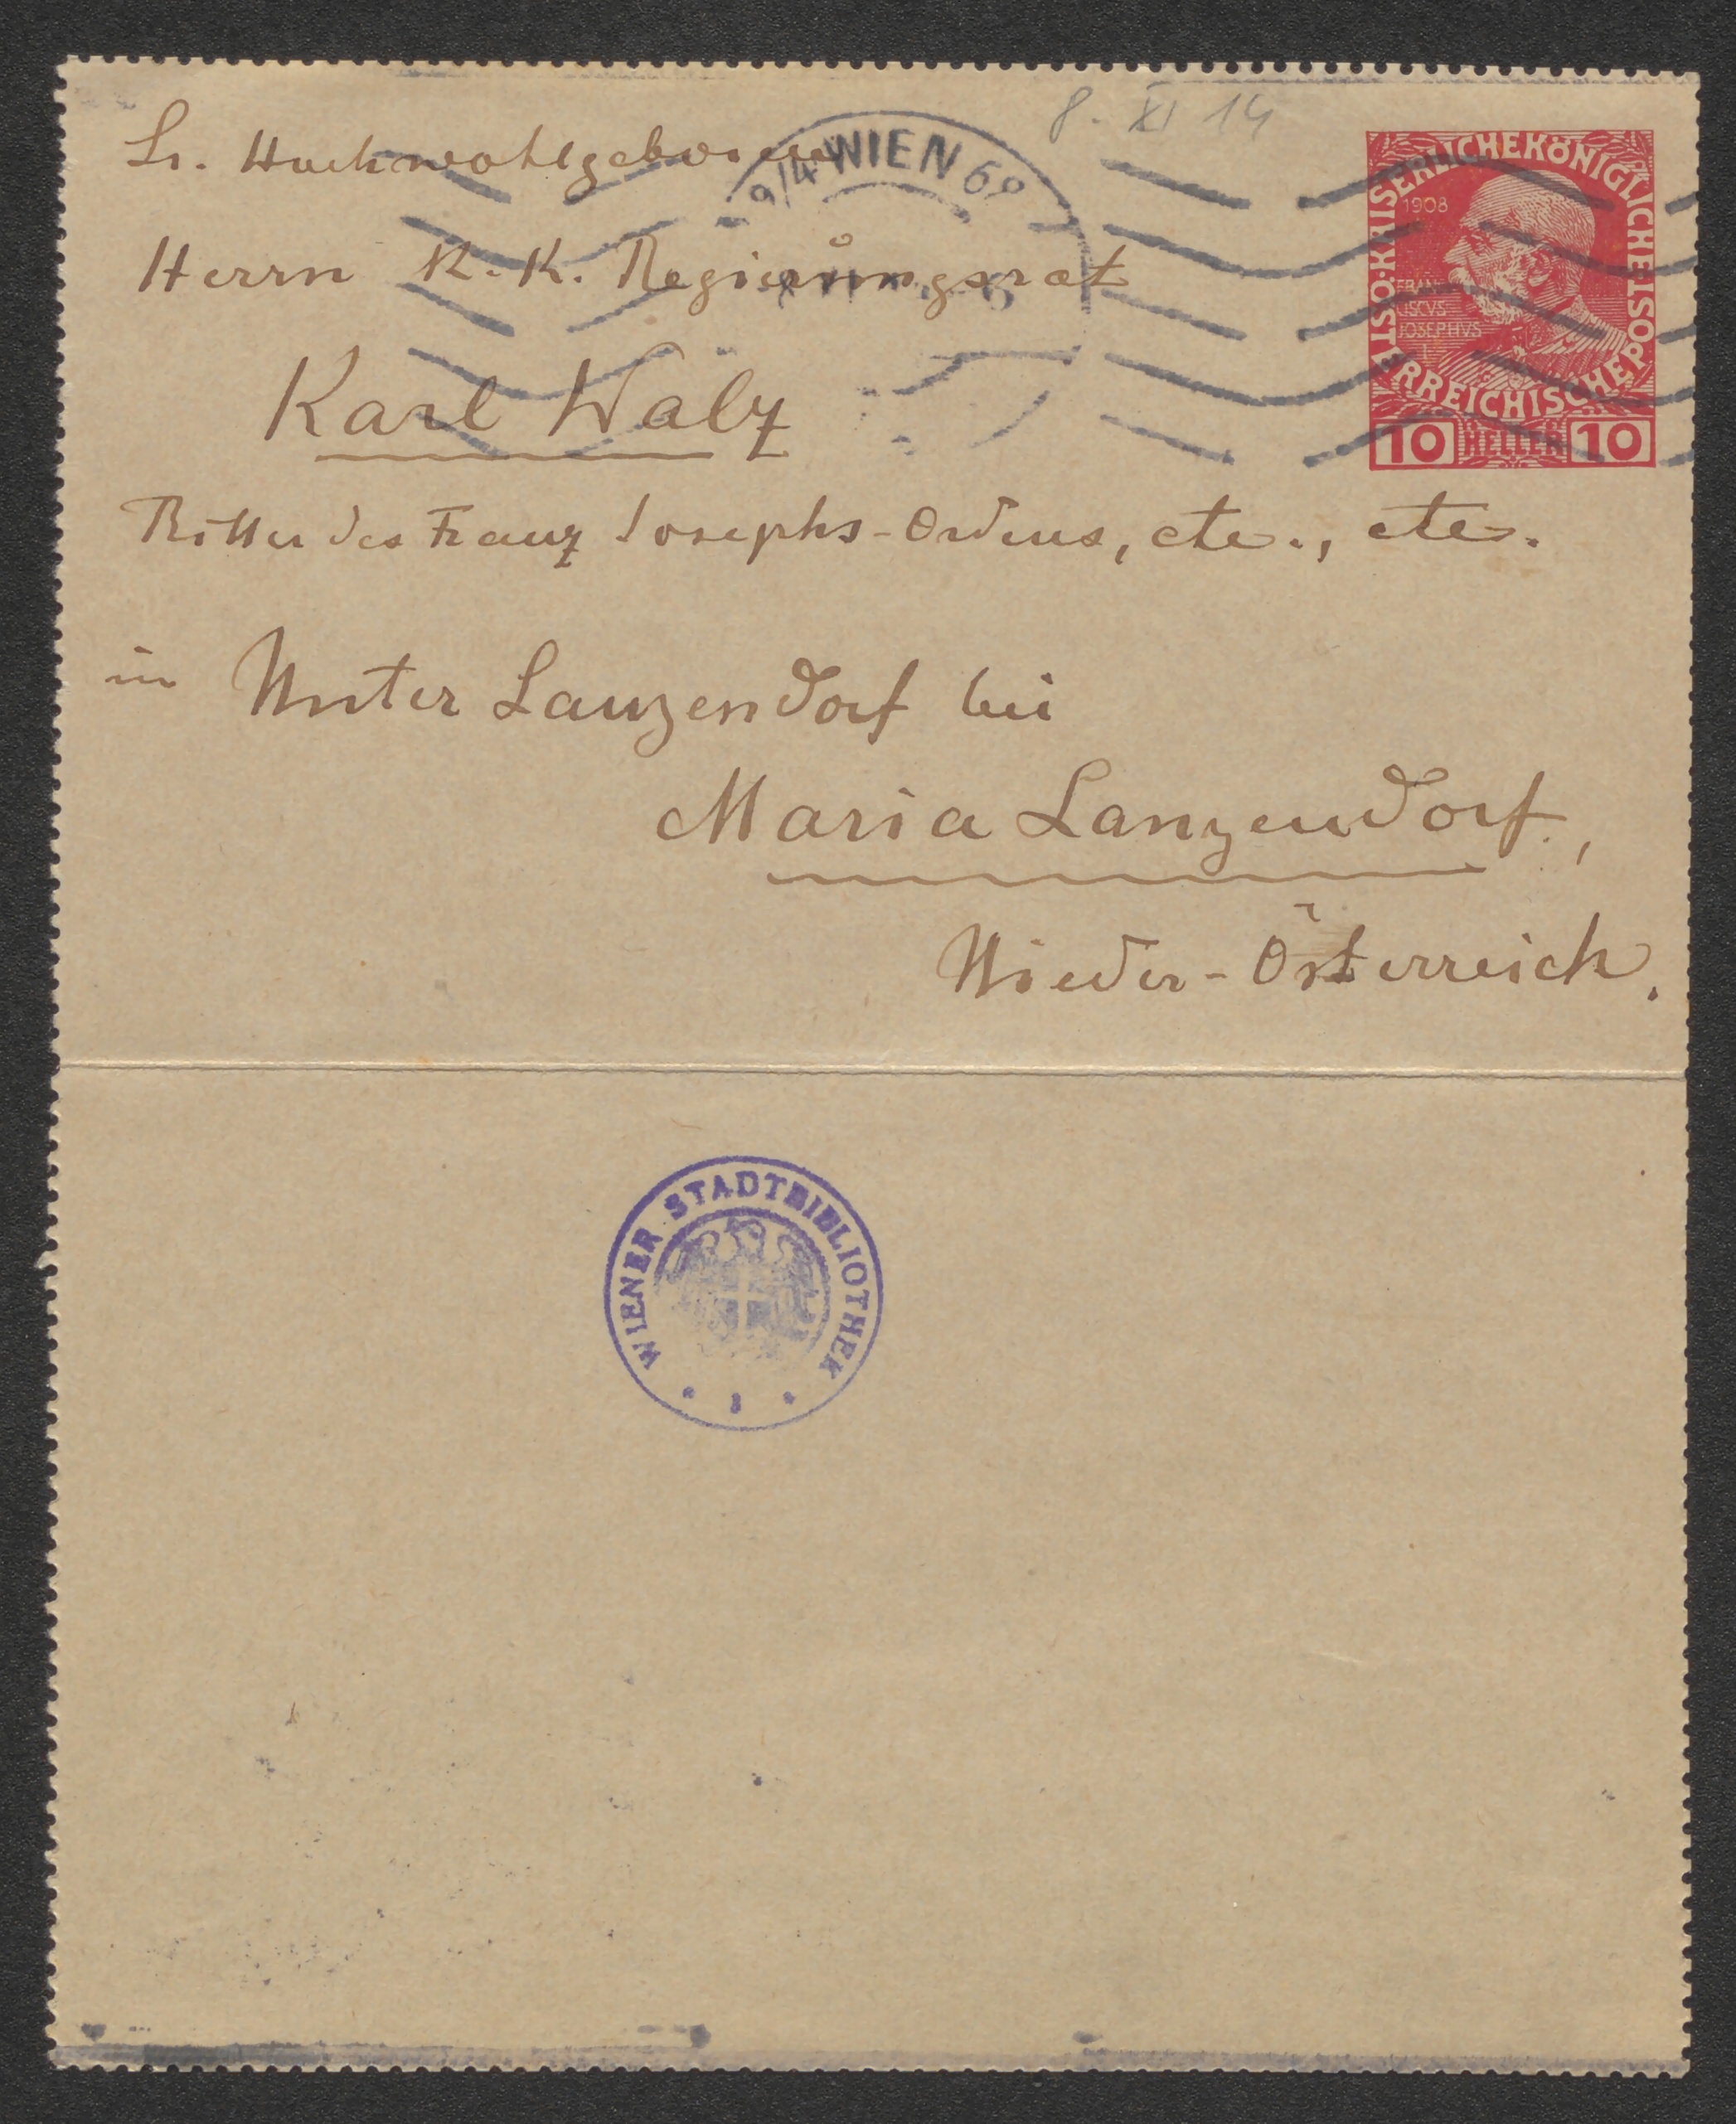 8. XI 14
Sr. Hochwohlgeboren
9/4 WIEN 69
Herrn K. K. Regierungsrat
Karl Walz
Ritter des Franz Josephs-Ordens, etc., etc.
in Unter Lanzendorf bei
Maria Lanzendorf,
Nieder-Österreich.
KAISERLICHEKÖNIGLICHE
ÖSTERREICHISCHE POST
1908
FRAN
CISCVS
IOSEPHVS
I
10 HELLER 10
WIENER STADTBIBLIOTHEK